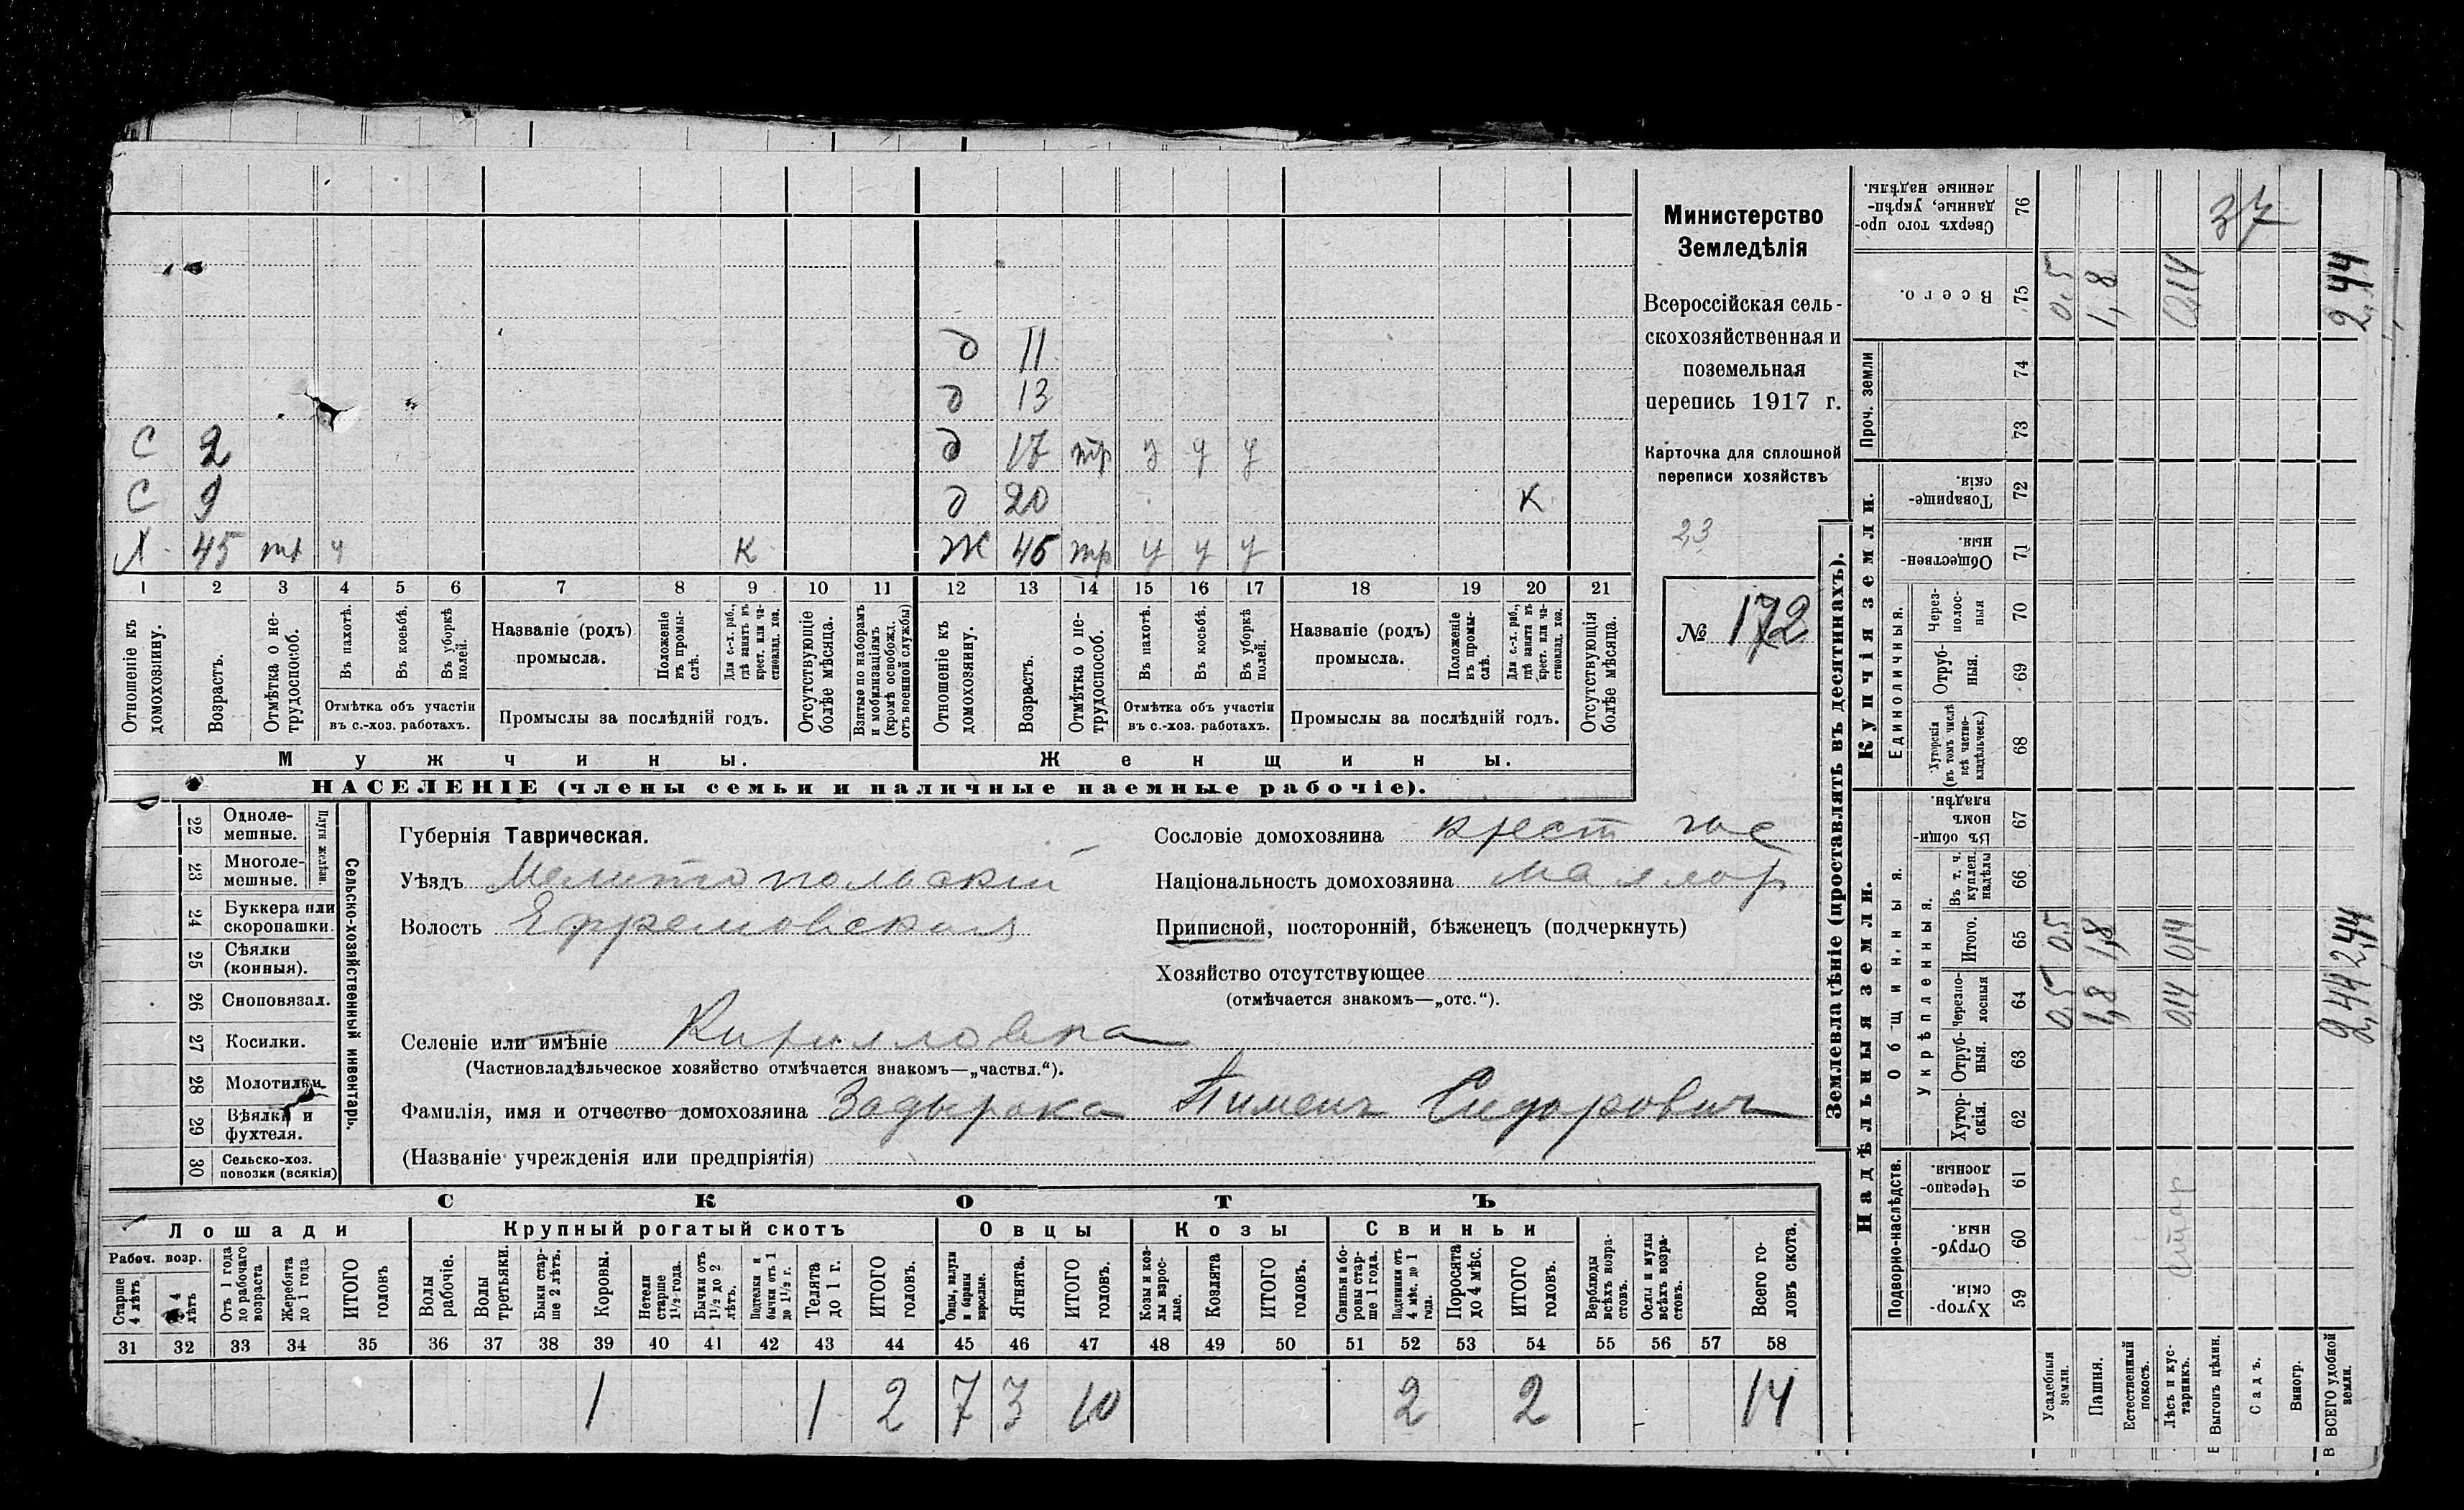 Министерство
Земледѣлія
Всероссійская сель-
скохозяйственная и
поземельная
перепись 1917 г.
Карточка для сплошной
переписи хозяйствъ
23
№ 172
д 11
д 13
С 2 д 17 тр у у у
С 9 д 20 К
Х 45 тр ч К Ж 45 тр у у у
1 2 3 4 5 6 7 8 9 10 11 12 13 14 15 16 17 18 19 20 21
Отношеніе къ домохозяину.
Возрастъ.
Отмѣтка о не-трудоспособ.
Въ пахотѣ.
Въ косьбѣ.
Въ уборкѣ полей.
Отмѣтка объ участіи
въ с.-хоз. работахъ.
Названіе (родъ)
промысла.
Положеніе въ промы-слѣ.
Для с.-х. раб., гдѣ занятъ въ крест. или ча-стновлад. хоз.
Промыслы за послѣдній годъ.
Отсутствующіе болѣе мѣсяца.
Взятые по наборамъ и мобилизаціямъ (кромѣ освобожд. отъ военной службы)
Отношеніе къ домохозяину.
Возрастъ.
Отмѣтка о не-трудоспособ.
Въ пахотѣ.
Въ косьбѣ.
Въ уборкѣ полей.
Отмѣтка объ участіи
въ с.-хоз. работахъ.
Названіе (родъ)
промысла.
Положеніе въ промы-слѣ.
Для с.-х. раб., гдѣ занята въ крест. или ча-стновлад. хоз.
Промыслы за послѣдній годъ.
Отсутствующія болѣе мѣсяца.
Мужчины. Женщины.
НАСЕЛЕНІЕ (члены семьи и наличные наемные рабочіе).
22 Одноле-мешные.
23 Многоле-мешные.
Плуги желѣзн.
24 Буккера или скоропашки.
25 Сѣялки (конныя).
26 Сноповязал.
27 Косилки.
28 Молотилки.
29 Вѣялки и фухтеля.
30 Сельско-хоз. повозки (всякія)
Сельско-хозяйственный инвентарь.
Губернія Таврическая.
Уѣздъ Мелитопольскій
Волость Ефремовская
Селеніе или имѣніе Кирилловка
(Частновладѣльческое хозяйство отмѣчается знакомъ—„частвл.“).
Фамилія, имя и отчество домохозяина Задырака Пименъ Сидоровичъ
(Названіе учрежденія или предпріятія)
Сословіе домохозяина крест
Національность домохозяина малор
Приписной, посторонній, бѣженецъ (подчеркнуть)
Хозяйство отсутствующее
(отмѣчается знакомъ—„отс.“).
СКОТЪ
Лошади Крупный рогатый скотъ Овцы Козы Свиньи
Рабоч. возр.
Старше 4 лѣтъ
4 лѣтъ
Отъ 1 года до рабочаго возраста
Жеребята до 1 года
ИТОГО головъ
Волы рабочіе.
Волы третьяки.
Быки стар-ше 2 лѣтъ.
Коровы.
Нетели старше 1½ года.
Бычки отъ 1½ до 2 лѣтъ.
Подтелки и бычки отъ 1 до 1½ г.
Телята до 1 г.
ИТОГО головъ.
Овцы, валухи и бараны взрослые.
Ягнята.
ИТОГО головъ.
Козы и коз-лы взрос-лые.
Козлята
ИТОГО головъ.
Свиньи и бо-ровы стар-ше 1 года.
Подсвинки отъ 4 мѣс. до 1 года.
Поросята до 4 мѣс.
ИТОГО головъ.
Верблюды всѣхъ возра-стовъ.
Ослы и мулы всѣхъ возра-стовъ.
Всего го-ловъ скота.
31 32 33 34 35 36 37 38 39 40 41 42 43 44 45 46 47 48 49 50 51 52 53 54 55 56 57 58
1 1 2 7 3 10 2 2 14
Землевладѣніе (проставлять въ десятинахъ).
Надѣльныя земли. Купчія земли. Проч. земли
Подворно-наслѣдств.
Общинныя.
Укрѣпленныя.
Единоличныя.
Сверхъ того про-данные, укрѣп-ленные надѣлы. 76 37
Всего. 75 0,5 1,8 0,14 2,44
74
73
Товарище-скія. 72
Обществен-ныя. 71
Через-полос-ныя 70
Отруб-ныя. 69
Хуторскія (въ томъ числѣ всѣ частно-владѣльческ.) 68
Въ общи-номъ владѣн. 67
Въ т. ч. куплен. надѣлы 66
Итого. 65 0,5 1,8 0,14 2,44
Черезпо-лосныя 64 0,5 1,8 0,14 2,44
Отруб-ныя. 63
Хутор-скія. 62
Черезпо-лосныя. 61
Отруб-ныя. 60
Хутор-скія. 59
Усадебныя земли.
Пашня.
Естественный покосъ.
Лѣсъ и кус-тарникъ.
Выгонъ цѣлин.
Садъ.
Виногр.
ВСЕГО удобной земли.